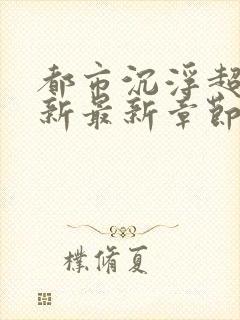 都市沉浮超
新最新章節
樸脩夏